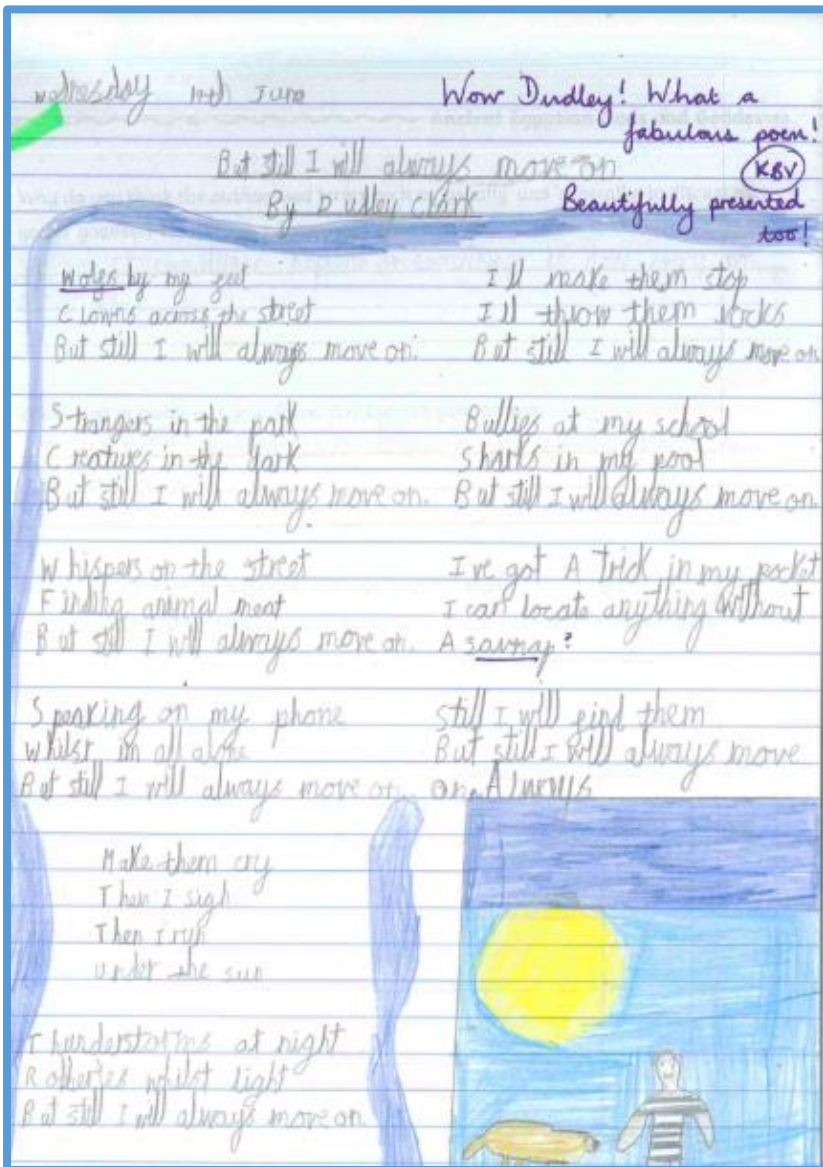 Wednesday 14th June
Wow Dudley! What a
fabulous poem!
KBV
Beautifully presented
too!
But still I will always move on
By Dudley Clark
Wolfs by my feet
Clowns across the street
But still I will always move on.
Strangers in the park
Creatures in the dark
But still I will always move on.
Whispers on the street
Finding animal meat
But still I will always move on.
Speaking on my phone
Whilst im all alone
But still I will always move on.
Make them cry
Then I sigh
Then I run
Under the sun
Thunderstorms at night
Robberies whilst light
But still I will always move on
I ll make them stop
I ll throw them rocks
But still I will always move on
Bullies at my school
Sharks in my pool
But still I will always move on
I ve got A trick in my pocket
I can locate anything without
A ?
Still I will find them
But still I will always move
on. Always